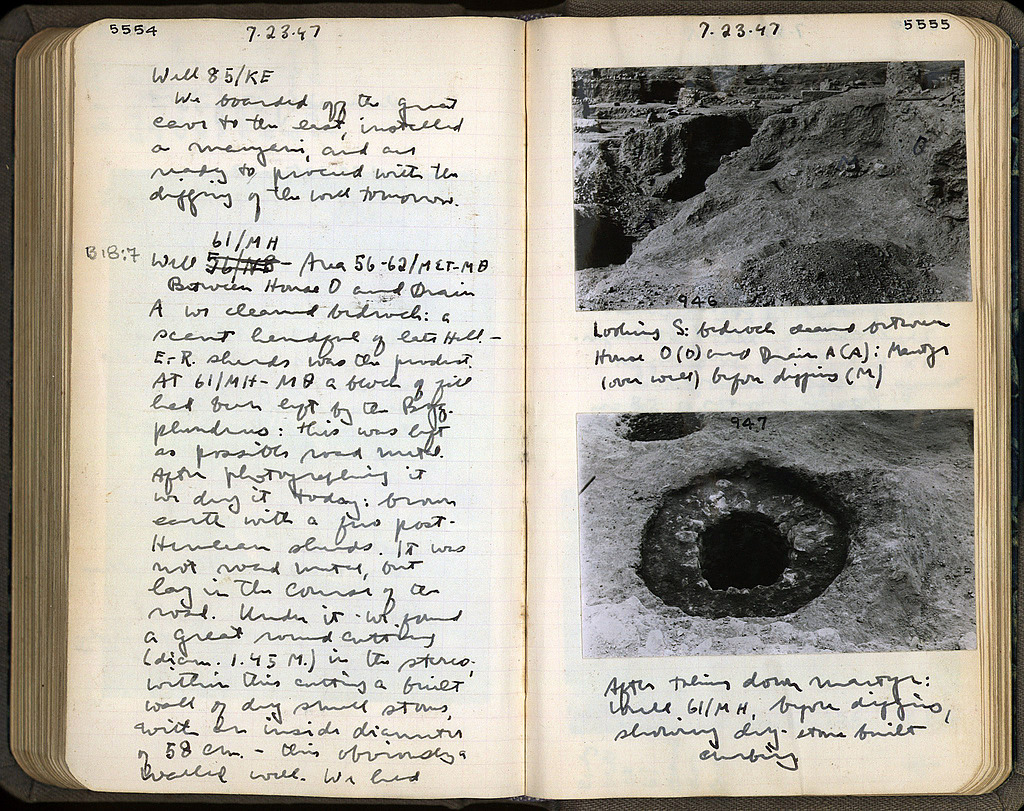 5554
7.23.47
Well 85/KE
We boarded off the great
cave to the east, installed
a manganni, and are
ready to proceed with the
digging of the well tomorrow.
B18:7
61/MH
Well 56/NB – Area 56-62/MET-MΘ
Between House D and Drain
A we cleared bedrock: a
scant handful of late Hell. –
E.R. sherds was the product.
At 61/MH-MΘ a block of fill
had been left by the Byz.
plunderers: this was left
as possible road metal.
After photographing it
we dug it today: brown
earth with a few post-
Herulean sherds. It was
not road metal, but
lay in the course of the
road. Under it we found
a great round cutting
(diam. 1.45 M.) in the stereo;
within this cutting a built
wall of dry small stones,
with an inside diameter
of 58 cm. – this obviously a
walled well. We had
5555
7.23.47
946
Looking S: bedrock cleared between
House D (D) and Drain A (A): Martyr
(over well) before digging (M)
947
After taking down martyr:
Well 61/MH, before digging,
showing dry-stone built
curbing